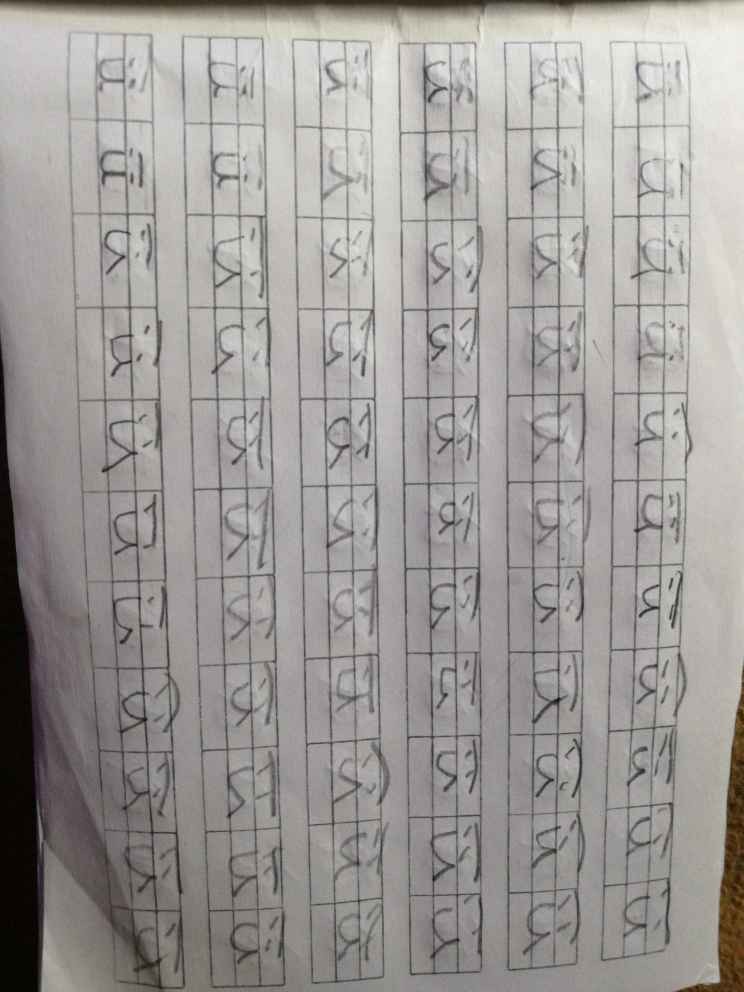 ǖ ǖ ǖ ǖ ǖ ǖ ǖ ǖ ǖ ǖ ǖ
ǖ ǖ ǖ ǖ ǖ ǖ ǖ ǖ ǖ ǖ ǖ
ǖ ǖ ǖ ǖ ǖ ǖ ǖ ǖ ǖ ǖ ǖ
ǖ ǖ ǖ ǖ ǖ ǖ ǖ ǖ ǖ ǖ ǖ
ǖ ǖ ǖ ǖ ǖ ǖ ǖ ǖ ǖ ǖ ǖ
ǖ ǖ ǖ ǖ ǖ ǖ ǖ ǖ ǖ ǖ ǖ